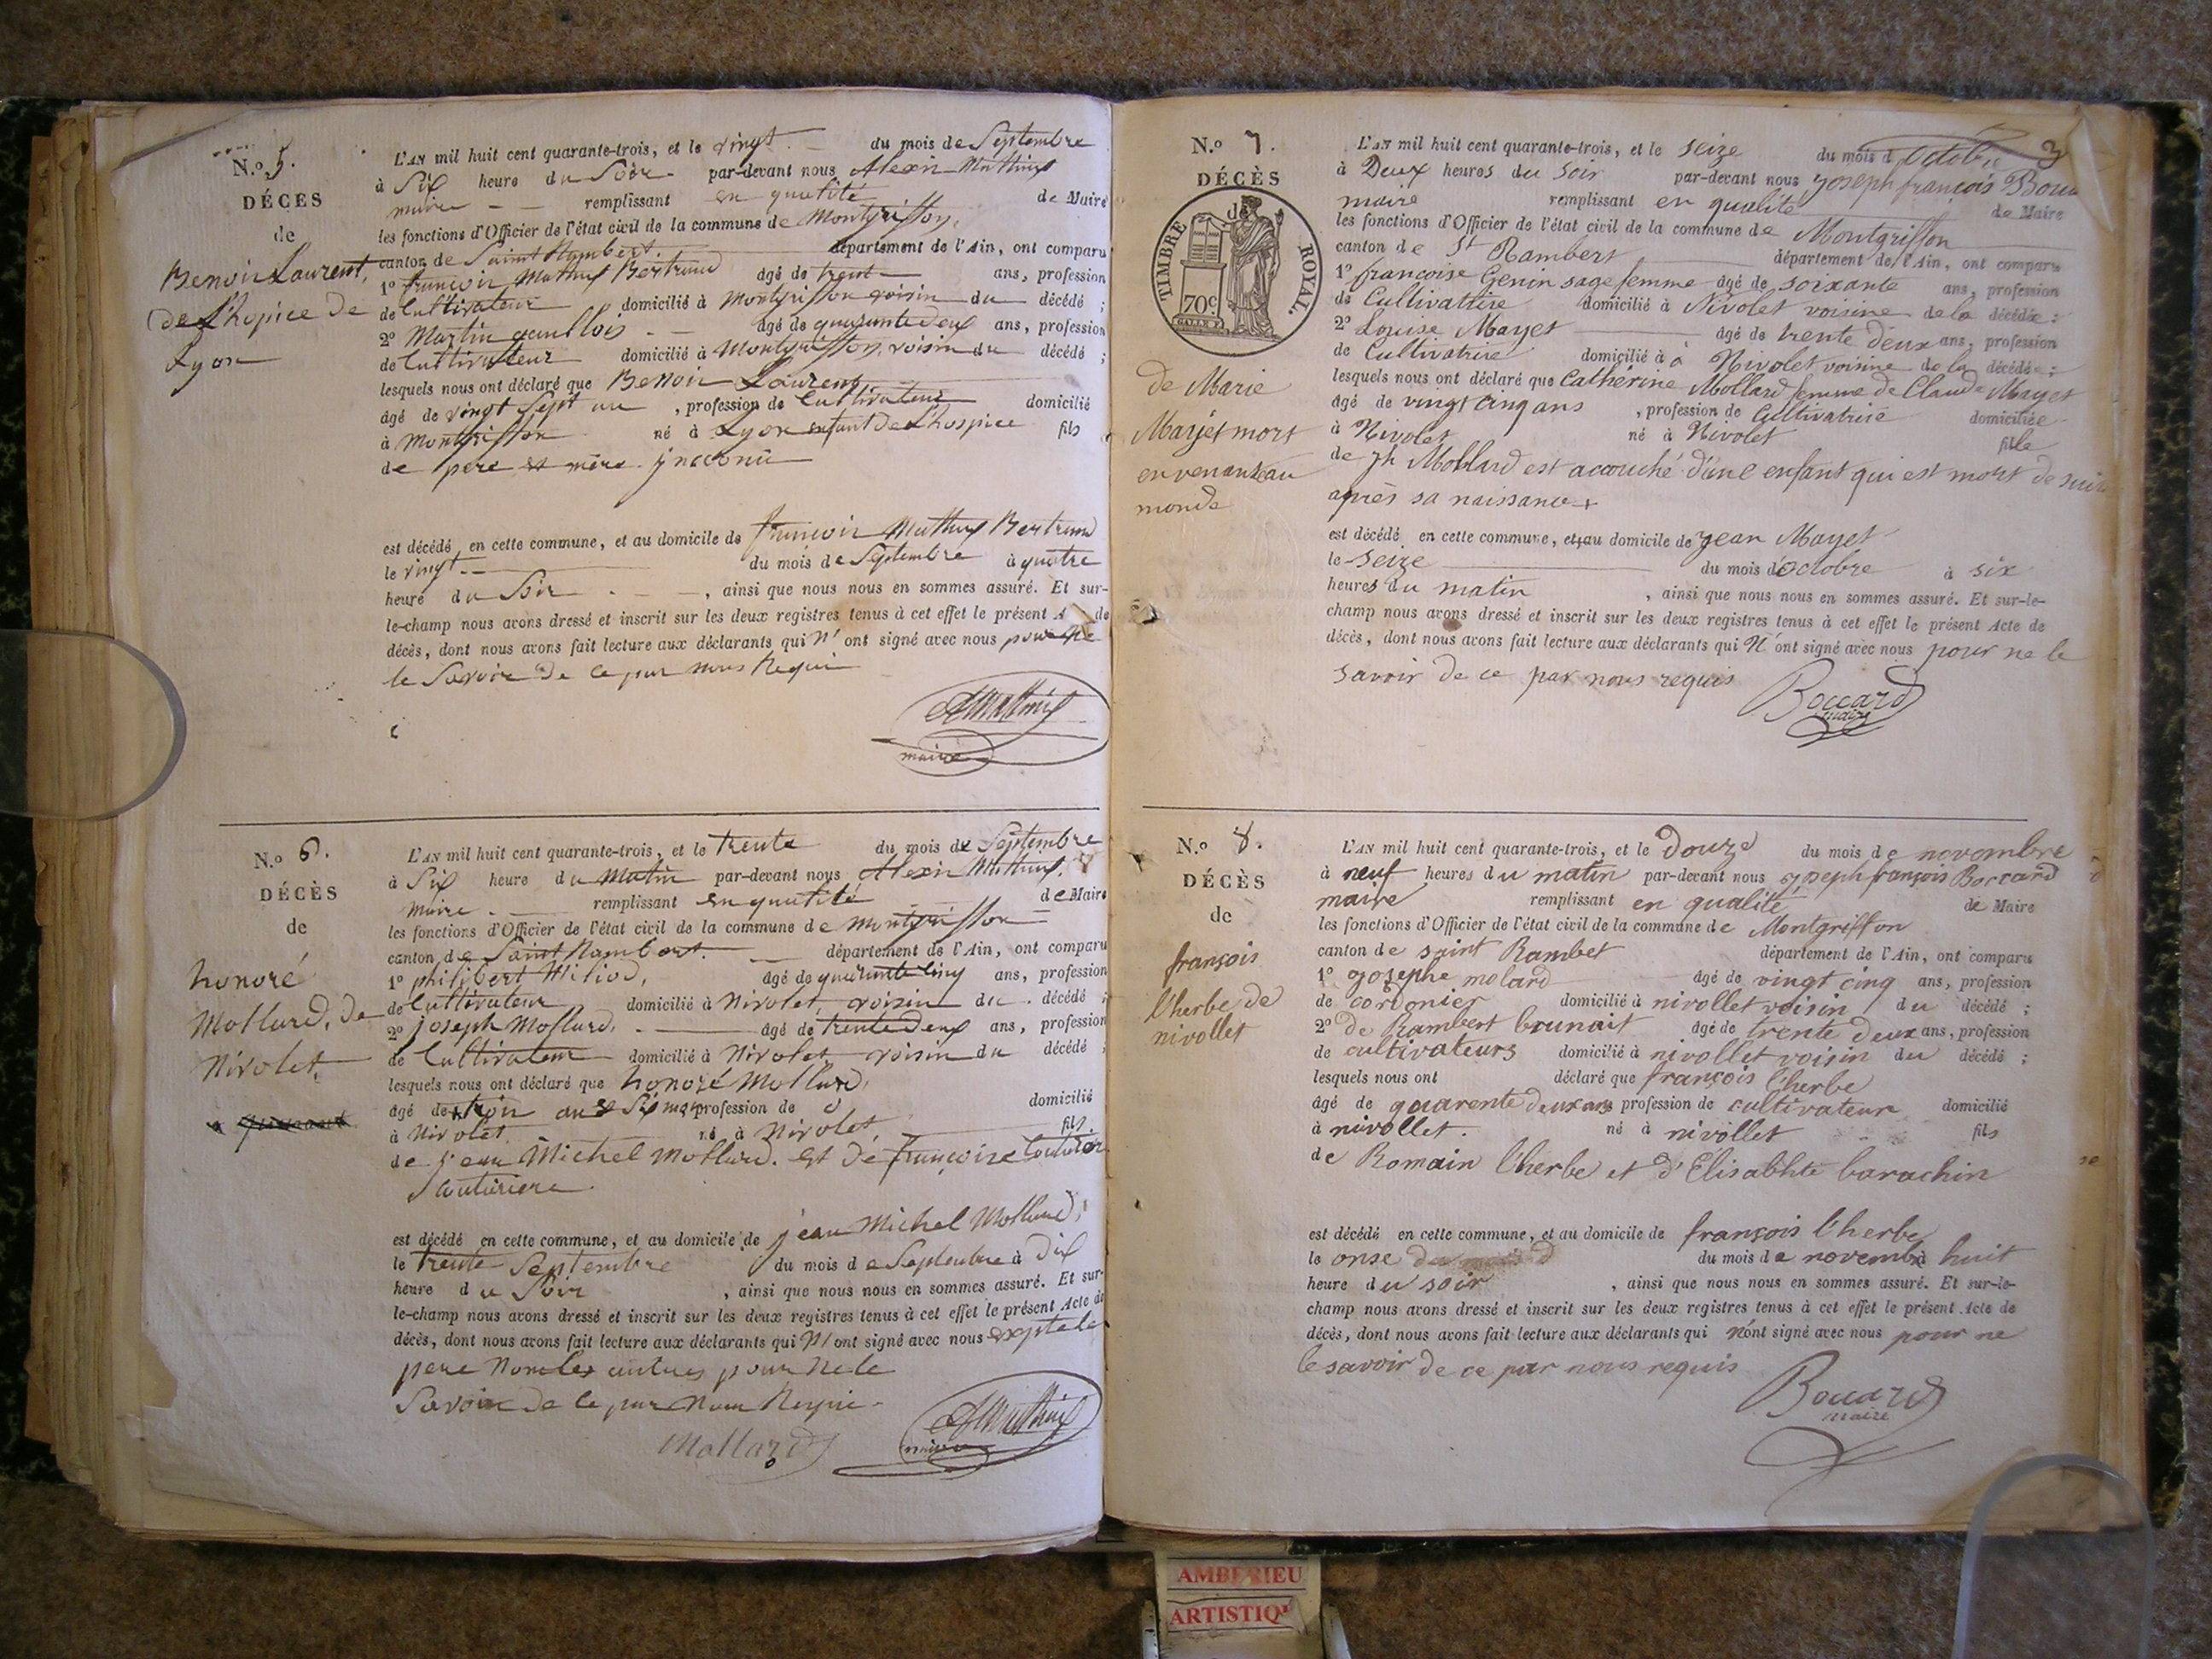 N.o 5.
DÉCES
de
Benoir Laurent,
de L'hopice de
Lyon
L'AN mil huit cent quarante-trois, et le vingt du mois de Septembre
à Six heure du Soir par-devant nous Alexis Mathieu
maire remplissant en qualité de Maire
les fonctions d'Officier de l'état civil de la commune de Montgriffon,
canton de Saint Rambert. département de l'Ain, ont comparu
1o Bertrand âgé de trent ans, profession
de Cultivateur domicilié à Montgriffon voisin du décédé ;
2o Martin âgé de quarante deux ans, profession
de Cultivateur domicilié à Montgriffon, voisin du décédé ;
lesquels nous ont déclaré que Benoir Laurent,
âgé de vingt Sept an , profession de Cultivateur domicilié
à Montgriffon né à Lyon enfant De L'hospice fils
de pere et mère
est décédé en cette commune, et au domicile de Bertrand
le vingt du mois de Septembre à quatre
heure du Soir , ainsi que nous nous en sommes assuré. Et sur-
le-champ nous avons dressé et inscrit sur les deux registres tenus à cet effet le présent A de
décès, dont nous avons fait lecture aux déclarants qui N' ont signé avec nous pour ne
le Savoir De ce par nous Requi
maire
N.o 6.
DÉCÈS
de
honoré
Mollard, de
Nivolet.
L'AN mil huit cent quarante-trois, et le trente du mois de Septembre
à Six heure du Matin par-devant nous Alexis Mathieu,
Maire remplissant en qualité de Maire
les fonctions d'Officier de l'état civil de la commune de Montgriffon
canton de Saint Rambert. département de l'Ain, ont comparu
1o philibert Miliod, âgé de quarante cinq ans, profession
de Cultivateur domicilié à Nivolet, voisin du décédé ;
2o joseph Mollard, âgé de trente Deux ans, profession
de Cultivateur domicilié à Nivolet voisin du décédé ;
lesquels nous ont déclaré que honoré Mollard,
âgé de trois ans profession de domicilié
à Nivolet. né à Nivolet, fils.
de jean Michel Mollard. et De françoise
Couturiere.
est décédé en cette commune, et au domicile de jean Michel Mollard,
le trente Septembre du mois de Septembre à Dix
heure du Soir , ainsi que nous nous en sommes assuré. Et sur-
le-champ nous avons dressé et inscrit sur les deux registres tenus à cet effet le présent Acte de
décès, dont nous avons fait lecture aux déclarants qui N' ont signé avec nous
pere Non les autres pour Ne le
Savoir De ce par Nous Requi
Mollard
maire
3
N.o 7.
DÉCÈS
de
TIMBRE ROYAL.
70c.
de Marie
Mayet mort
en venant au
monde
L'AN mil huit cent quarante-trois, et le seize du mois d'Octobre
à Deux heures du soir par-devant nous joseph françois
maire remplissant en qualité de Maire
les fonctions d'Officier de l'état civil de la commune de Montgriffon
canton de St Rambert département de l'Ain, ont comparu
1o françoise Genin sage femme âgé de soixante ans, profession
de Cultivatrice domicilié à Nivolet voisine de la décédée ;
2o Louise Mayet âgé de trente deux ans, profession
de Cultivatrice domicilié à à Nivolet voisine de la décédée ;
lesquels nous ont déclaré que Cathérine Mollard femme de Claude Mayet
âgé de vingt cinq ans , profession de Cultivatrice domiciliée
à Nivolet né à Nivolet fille
de jh Mollard est acouché d'une enfant qui est mort de suite
après sa naissance
est décédé en cette commune, et au domicile de jean Mayet
le seize du mois d'octobre à six
heures du matin , ainsi que nous nous en sommes assuré. Et sur-le-
champ nous avons dressé et inscrit sur les deux registres tenus à cet effet le présent Acte de
décès, dont nous avons fait lecture aux déclarants qui N' ont signé avec nous pour ne le
savoir de ce par nous requis
Boccard
maire
N.o 8.
DÉCÈS
de
françois
l'herbe de
nivollet
L'AN mil huit cent quarante-trois, et le douze du mois de novembre
à neuf heures du matin par-devant nous joseph françois Boccard
maire remplissant en qualité de Maire
les fonctions d'Officier de l'état civil de la commune de Montgriffon
canton de saint Rambet département de l'Ain, ont comparu
1o josephe molard âgé de vingt cinq ans, profession
de cordonier domicilié à nivollet voisin du décédé ;
2o de Rambert brunait âgé de trente deux ans, profession
de cultivateurs domicilié à nivollet voisin du décédé ;
lesquels nous ont déclaré que françois l'herbe
âgé de quarente deux ans profession de cultivateur domicilié
à nivollet. né à nivollet fils
de Romain l'herbe et d'Elisabhte barachin
est décédé en cette commune, et au domicile de françois l'herbe
le onse du mois de novembre à huit
heure du soir , ainsi que nous nous en sommes assuré. Et sur-le-
champ nous avons dressé et inscrit sur les deux registres tenus à cet effet le présent Acte de
décès, dont nous avons fait lecture aux déclarants qui n'ont signé avec nous pour ne
le savoir de ce par nous requis
Boccard
maire
AMBERIEU
ARTISTIQ